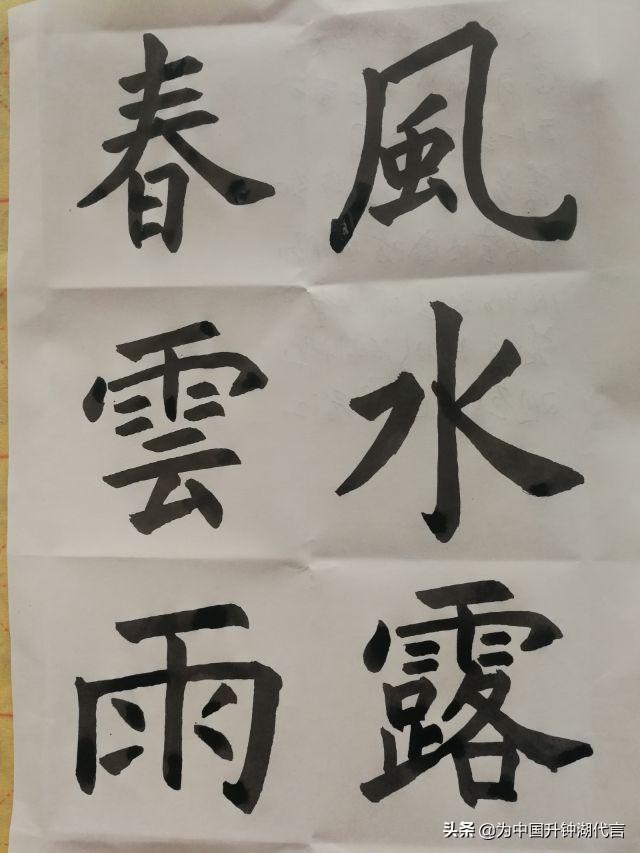 風水露
春雲雨
头条 @为中国升钟湖代言